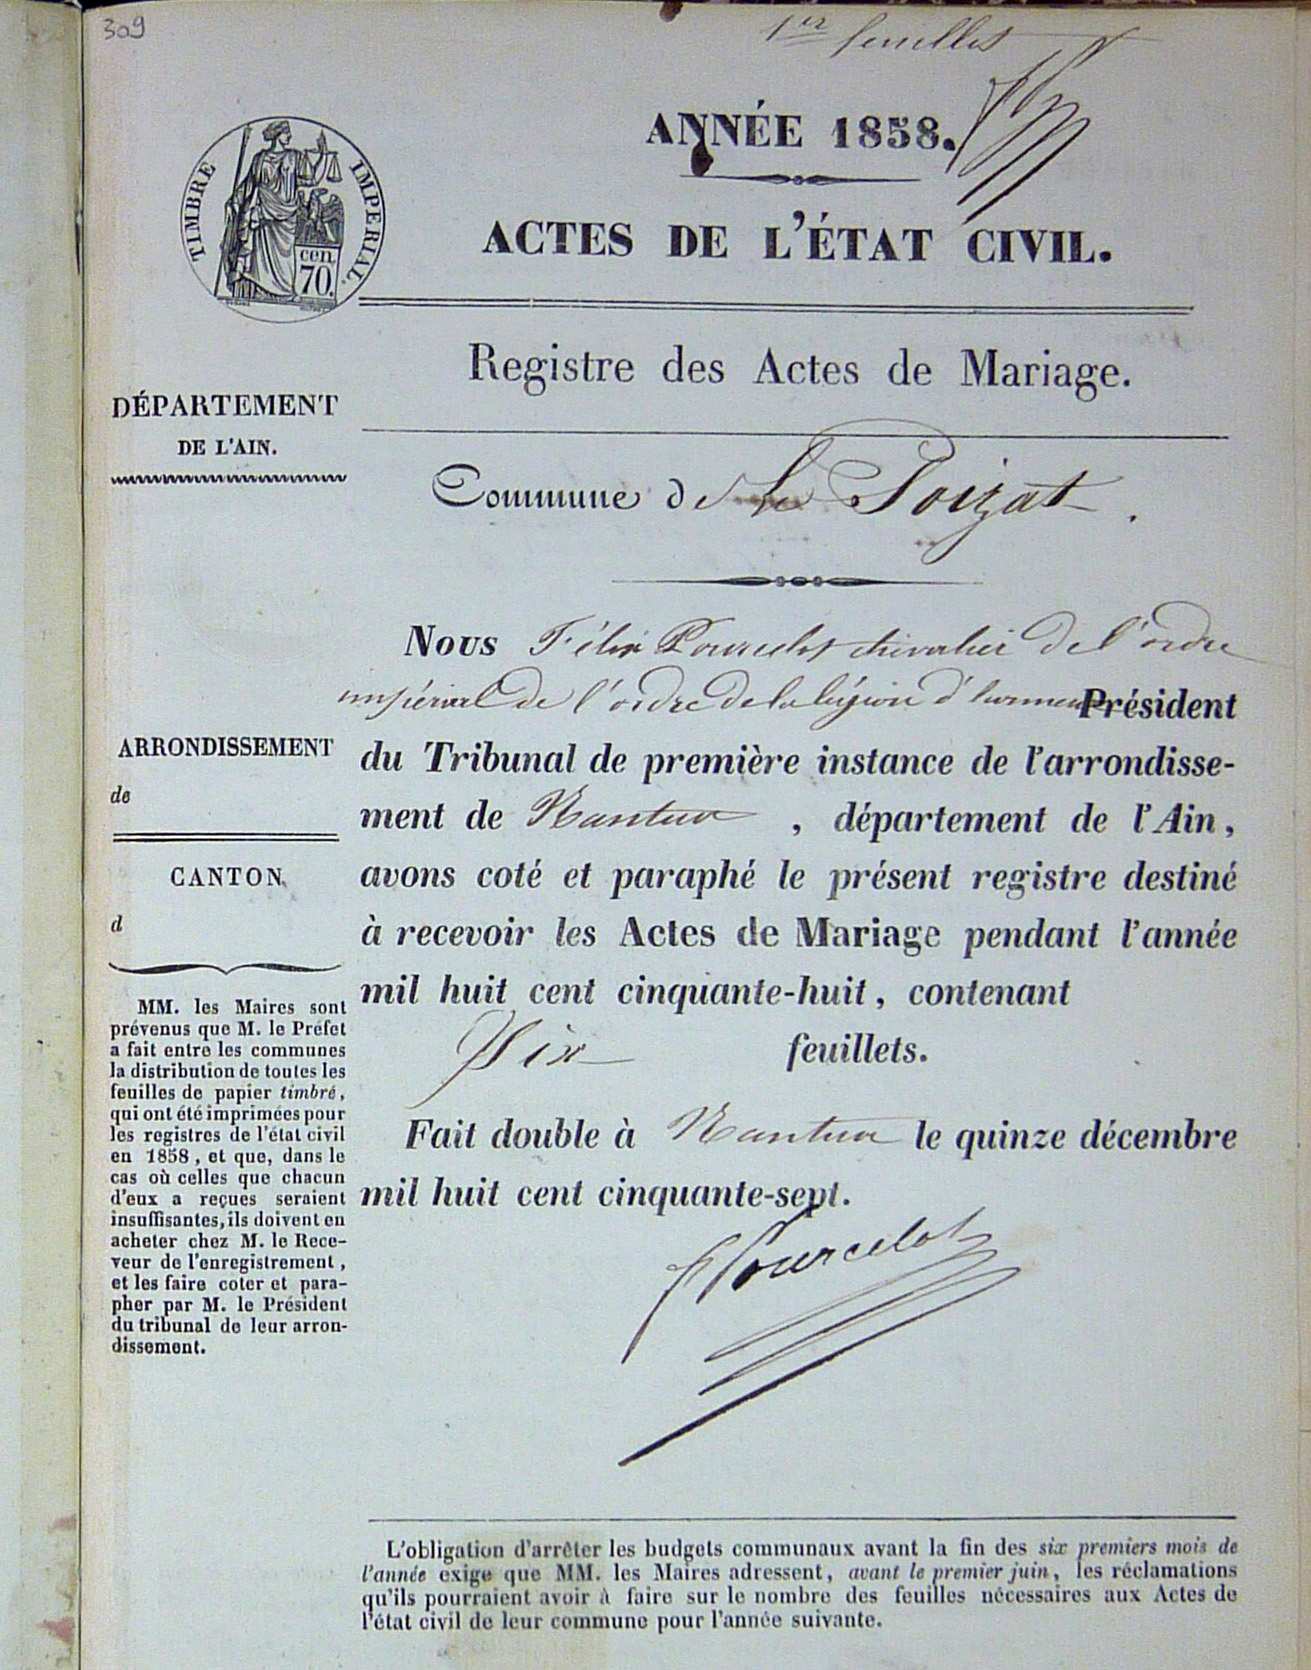 309
1er feuillet
ANNÉE 1858.
TIMBRE IMPERIAL.
cen.
70.
ACTES DE L'ÉTAT CIVIL.
Registre des Actes de Mariage.
DÉPARTEMENT
DE L'AIN.
Commune de Le Poizat.
Nous Félix Pourcelot chevalier de l'ordre
impérial de l'ordre de la légion d'honneur Président
du Tribunal de première instance de l'arrondisse-
ment de Nantua, département de l'Ain,
avons coté et paraphé le présent registre destiné
à recevoir les Actes de Mariage pendant l'année
mil huit cent cinquante-huit, contenant
Six feuillets.
Fait double à Nantua le quinze décembre
mil huit cent cinquante-sept.
FPourcelot
ARRONDISSEMENT
de
CANTON
d
MM. les Maires sont
prévenus que M. le Préfet
a fait entre les communes
la distribution de toutes les
feuilles de papier timbré,
qui ont été imprimées pour
les registres de l'état civil
en 1858, et que, dans le
cas où celles que chacun
d'eux a reçues seraient
insuffisantes, ils doivent en
acheter chez M. le Rece-
veur de l'enregistrement,
et les faire coter et para-
pher par M. le Président
du tribunal de leur arron-
dissement.
L'obligation d'arrêter les budgets communaux avant la fin des six premiers mois de
l'année exige que MM. les Maires adressent, avant le premier juin, les réclamations
qu'ils pourraient avoir à faire sur le nombre des feuilles nécessaires aux Actes de
l'état civil de leur commune pour l'année suivante.